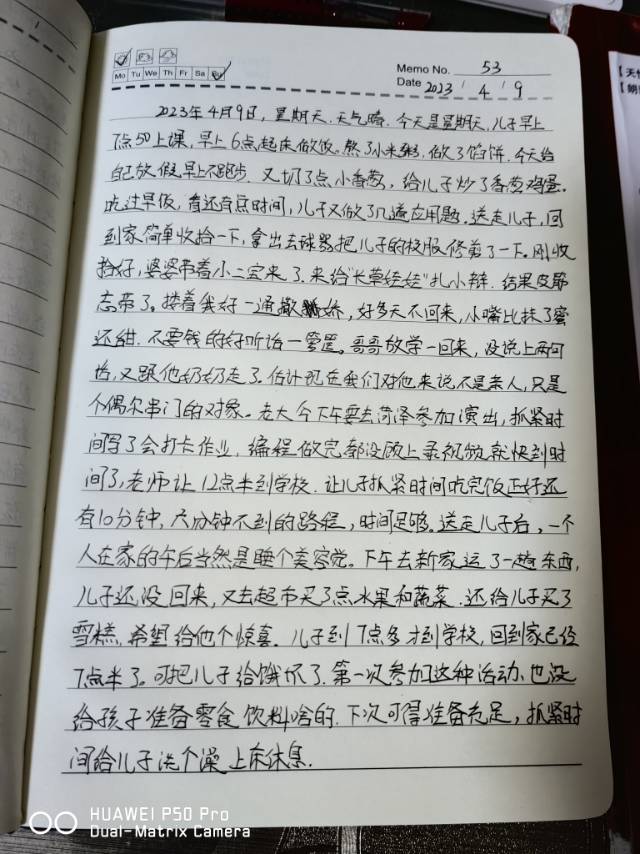 Mo Tu We Th Fr Sa Su
Memo No. 53
Date 2023 / 4 / 9
2023年4月9日,星期天.天气晴.今天是星期天,儿子早上
7点50上课,早上6点起床做饭。熬了小米粥,做了馅饼.今天给
自己放假早上不跑步.又切了点小香葱,给儿子炒了香葱鸡蛋。
吃过早饭,看还有点时间,儿子又做了几道应用题.送走儿子,回
到家简单收拾一下,拿出去球器把儿子的校服修剪了一下。刚收
拾好,婆婆带着小二宝来了.来给“长草娃娃”扎小辫.结果皮筋
忘带了。搂着我好一通撒娇,好多天不回来,小嘴比抹了蜜
还甜.不要钱的好听话一箩筐。哥哥放学一回来,没说上两句
话,又跟他奶奶走了.估计现在我们对他来说不是亲人,只是
个偶尔串门的对象。老大今下午要去菏泽参加演出,抓紧时
间写了会打卡作业.编程做完都没顾上录视频就快到时
间了,老师让12点半到学校.让儿子抓紧时间吃完饭正好还
有10分钟,六分钟不到的路程,时间足够。送走儿子后,一个
人在家的午后当然是睡个美容觉。下午去新家运了一趟东西,
儿子还没回来,又去超市买了点水果和蔬菜.还给儿子买了
雪糕,希望给他个惊喜.儿子到7点多才到学校,回到家已经
7点半了。可把儿子给饿坏了.第一次参加这种活动、也没
给孩子准备零食饮料啥的.下次可得准备充足,抓紧时
间给儿子洗个澡上床休息.
HUAWEI P50 Pro
Dual-Matrix Camera